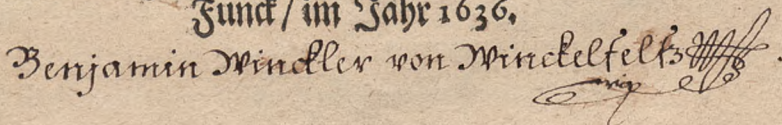 Funck / im Jahr 1636.
Benjamin Winckler von Winckelfelß